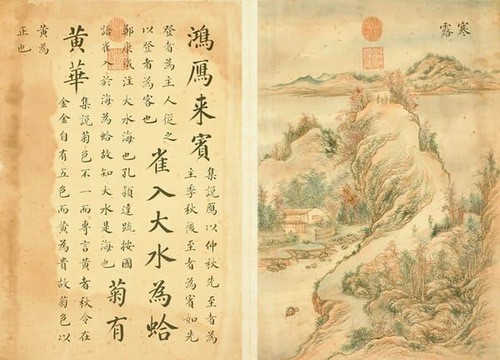 寒露
鴻雁来賓
集說雁以仲秋先至者為
主季秋後至者為賓如先
登者為主人從之
以登者為客也
雀入大水為蛤
鄭康成注大水海也孔穎達疏按國
語雀入於海為蛤故知大水是海也
菊有
黃華
集說菊色不一而專言黃者秋令在
金金自有五色而黃為貴故菊色以
黃為
正也